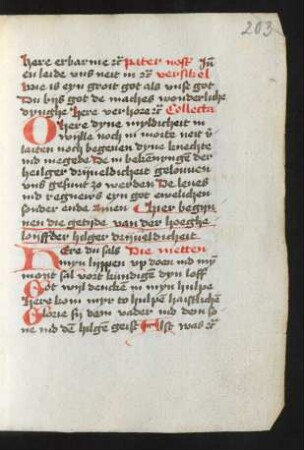 203
here erbarme et͛ Pater nost͛ In̄
en leide vns neit in et͛ versikel
wie is eyn groit got als vnse got
Du bijs got de maches wonderliche
dynghe here verhoere et͛ Collecta
O here dyne myldicheit in
wijlle noch in moite neit v͛
laiten noch begeuen dyne knechte
ind megede De in bekēnyngē der
heilger drijueldicheit gelouuen
vns gesunt zo werden De leues
ind regneirs eyn got ewelichen
sonder ende Amen Hier begijn
nen die getijde van der hoeghe
loifft der hilger drijueldicheit
Here du sals Die metten
myn lippen vp doen ind myn
mont sal vort kundigē dyn loff
Got wijl dencken in myn hulpe
here kom myr to hulpē haistlichē
Glorie sy dem vader ind dem so
ne ind dē hilgē geist Alst was et͛